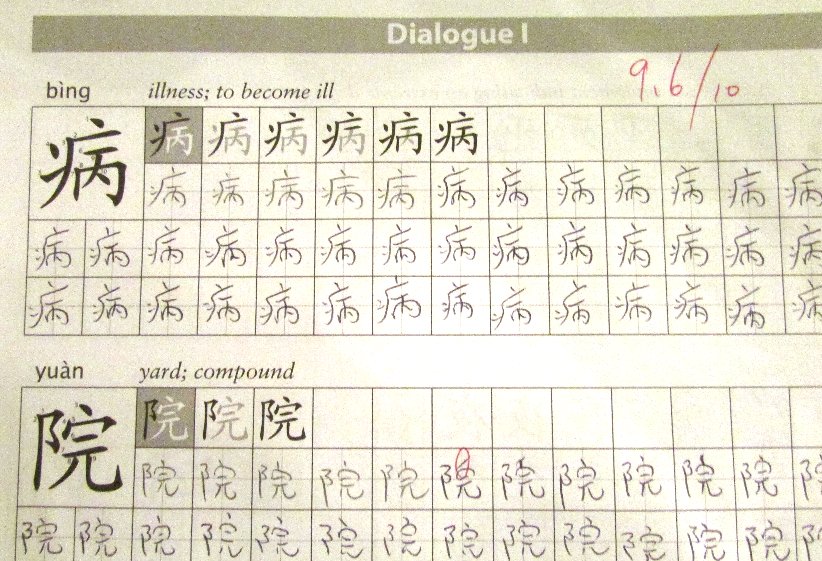 Dialogue I
9.6/10
bìng illness; to become ill
病 病病病病病病
病病病病病病病病病病病病
病病病病病病病病病病病病病病
病病病病病病病病病病病病病病
yuàn yard; compound
院 院院院
院院院院院院院院院院院院
院院院院院院院院院院院院院院